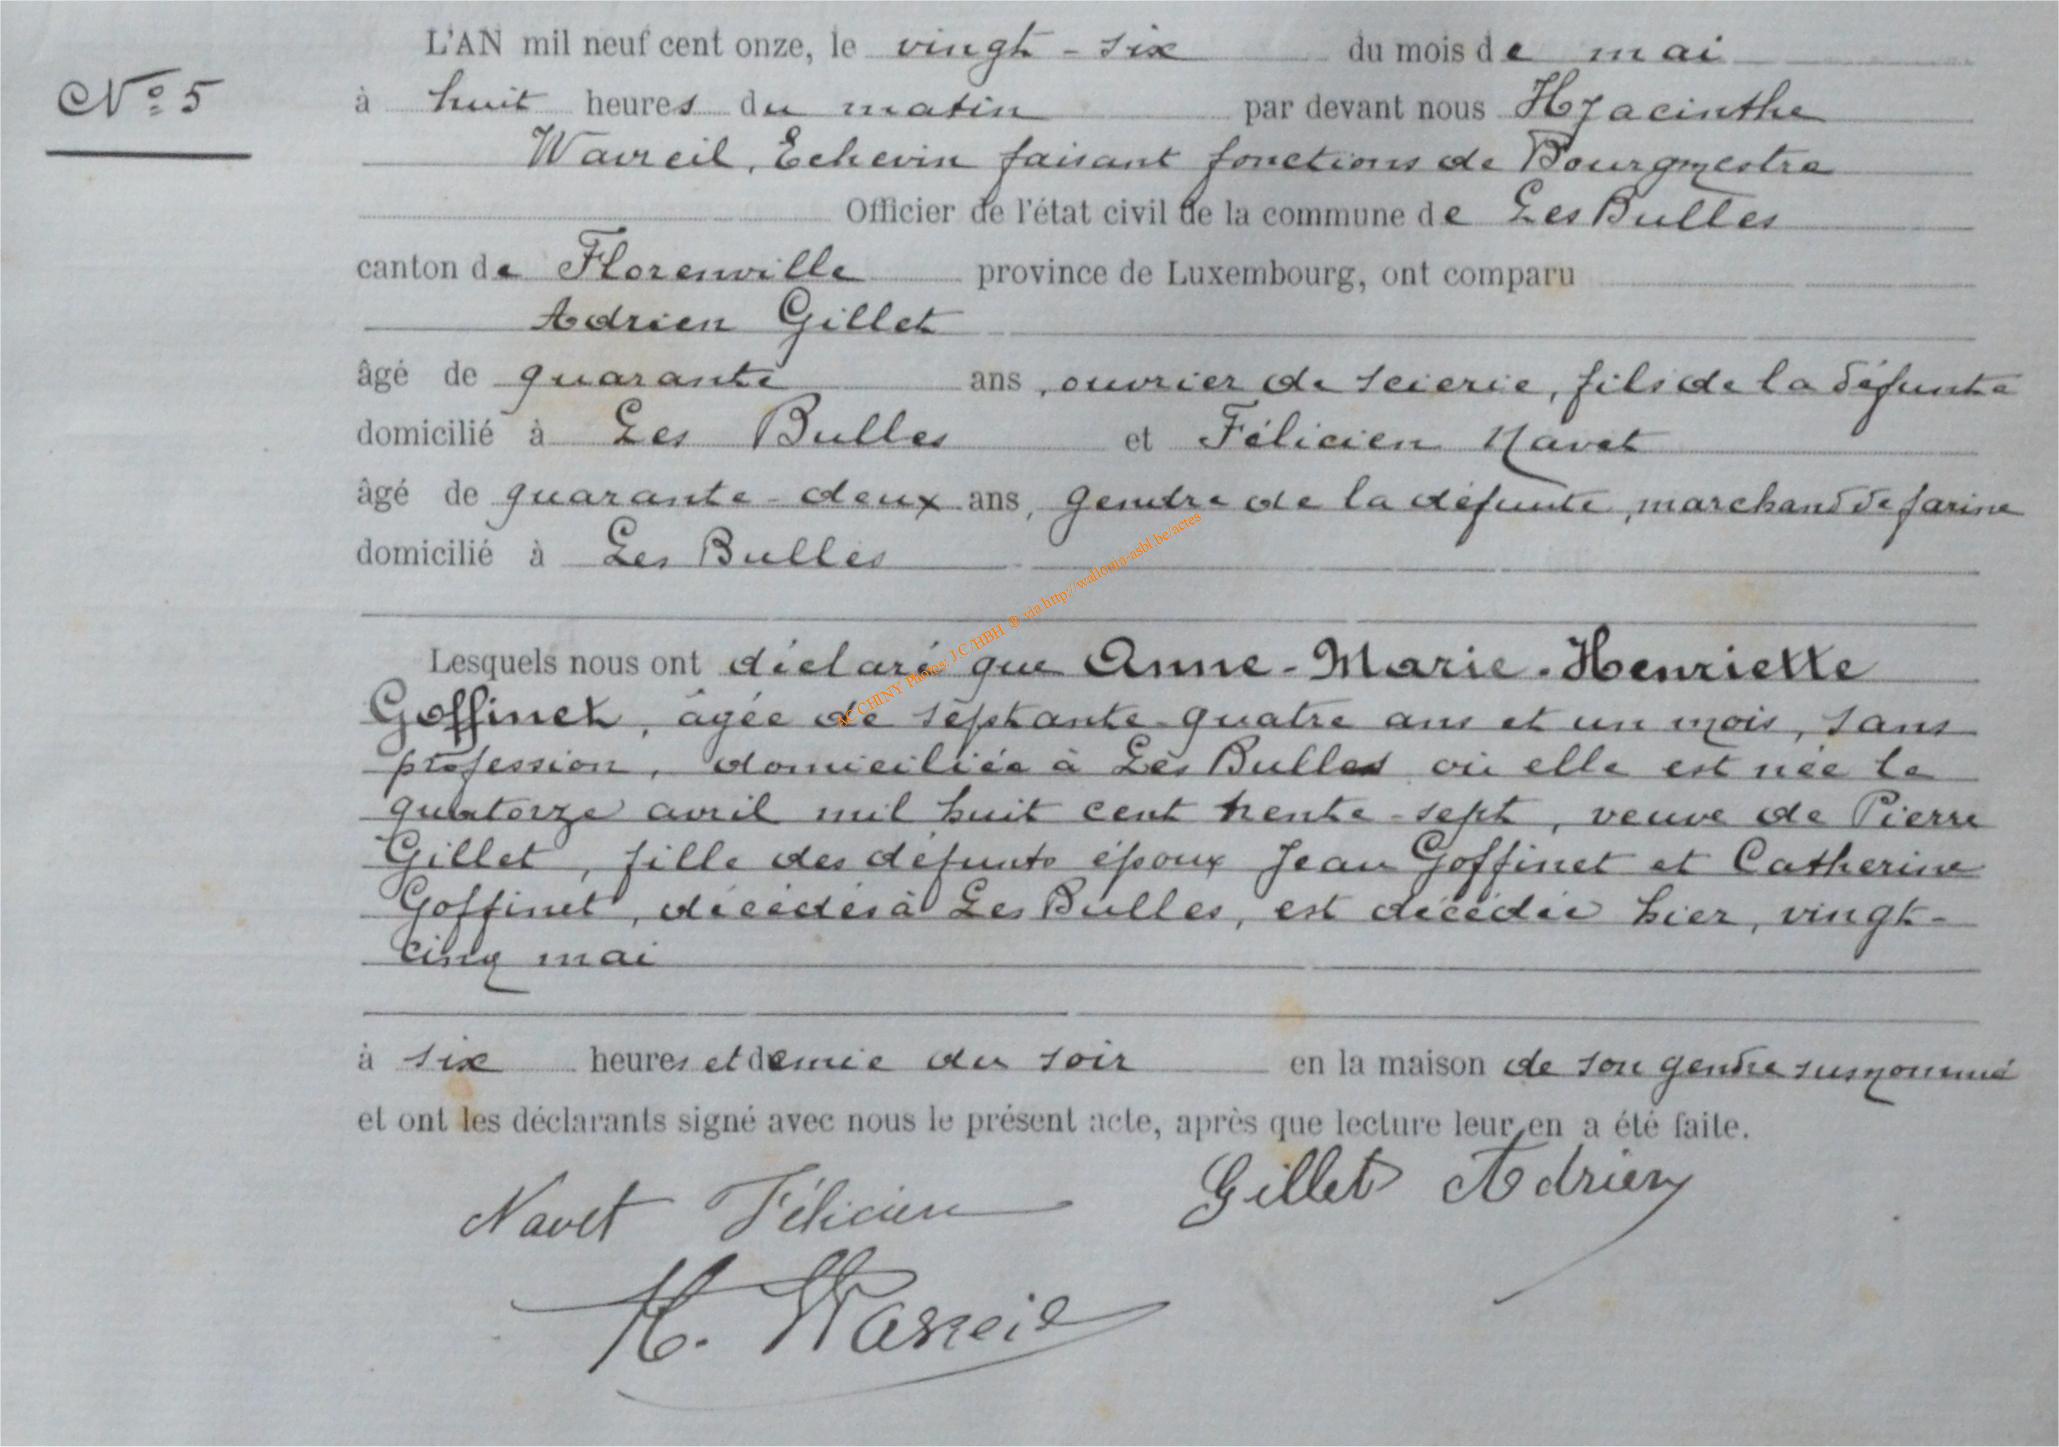 L'AN mil neuf cent onze, le vingt-six du mois de mai
N° 5
à huit heures du matin par devant nous Hyacinthe
Wavreil, Echevin faisant fonctions de Bourgmestre
Officier de l'état civil de la commune de Les Bulles
canton de Florenville province de Luxembourg, ont comparu
Adrien Gillet
âgé de quarante ans, ouvrier de scierie, fils de la défunte
domicilié à Les Bulles et Félicien Navet
âgé de quarante-deux ans, gendre de la défunte, marchand de farine
domicilié à Les Bulles
Lesquels nous ont déclaré que Anne-Marie-Henriette
Goffinet, âgée de septante-quatre ans et un mois, sans
profession, domiciliée à Les Bulles où elle est née le
quatorze avril mil huit cent trente-sept, veuve de Pierre
Gillet, fille des défunts époux Jean Goffinet et Catherine
Goffinet, décédés à Les Bulles, est décédée hier, vingt-
cinq mai
à six heures et demie du soir en la maison de son gendre susnommé
et ont les déclarants signé avec nous le présent acte, après que lecture leur en a été faite.
Navet Félicien Gillet Adrien
H. Wavreil
AC CHINY Photos J.C/HBH ® via http://wallonia-asbl.be/actes